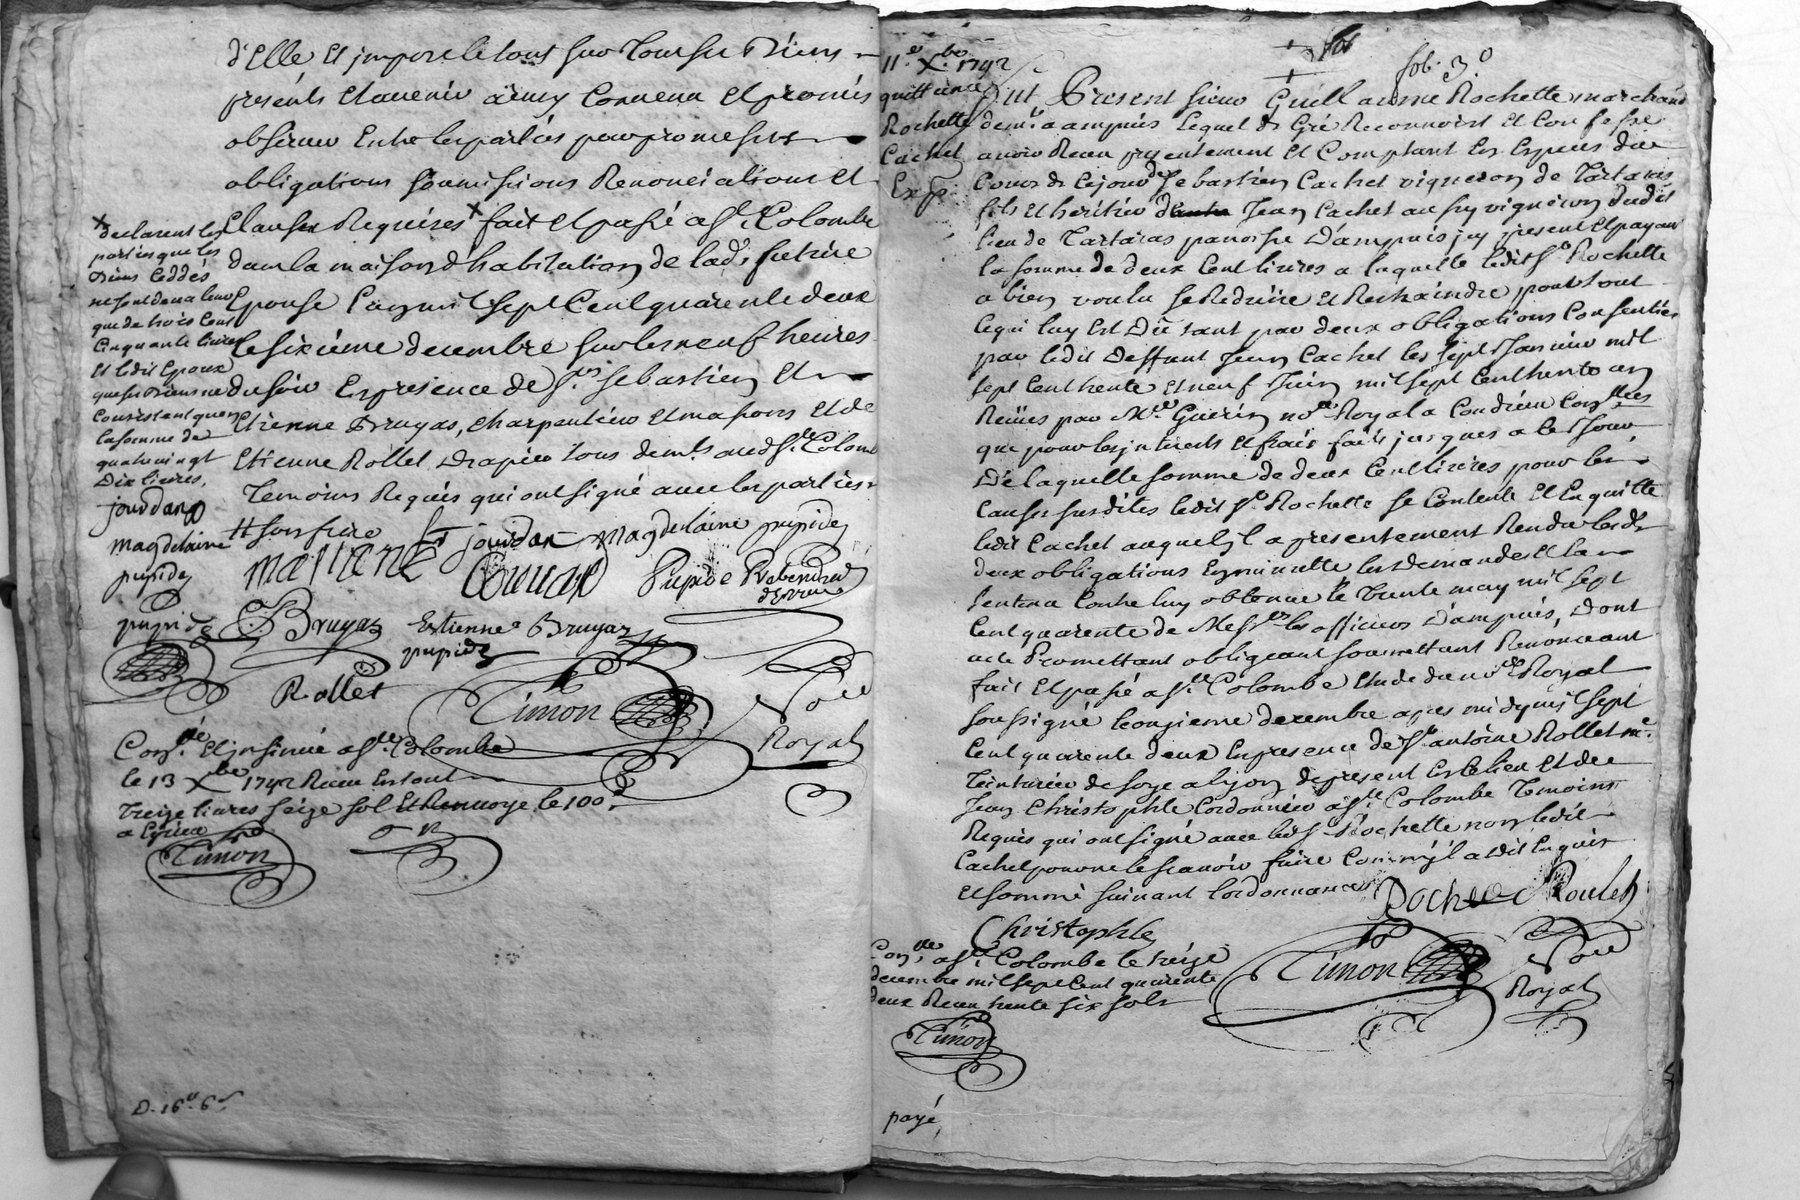 d'Elle Et impose le tout sur tous ses Biens
presents Et avenir ainsy Convenu Et promis
observer Entre les parties par promesses
obligations soumissions Renonciations Et
Clauses Requises x fait Et passé a Ste Colombe
dans la maison d'habitation de lad. future
Epouse L'an mil sept Cent quarente deux
le sixieme decembre sur les neuf heures
du soir En presence de Srs sebastien Et
Etienne Bruyas, charpentier Et masons Et de
Etienne Rollet Drapier tous demts aud Ste Colombe
Temoins Requis qui ont signé avec les parties
x declarent les
parties que les
Biens ceddés
ne sont de valeur
que de trois Cent
Cinquante livres
Et ledit Epoux
que ses Biens ne
Consistent qu'en
la somme de
quatrevingt
Dix livres.
jourdan
magdelaine
pupide
pupide
jourdan magdelaine pupide
Pupide Prebendier
Bruyas Estienne Bruyas
pupide
Rollet Timon Nore
Royal
Conlé Et insinué a Ste Colombe
le 13 Xbre 1742 Receu En tout
Treize livres seize sol Et Renvoyé le 100d
a Lyon
Timon
D. 16# 6s
11e Xbre 1742
quittance
Rochette
Cachet
Exp.
fol. 3o
fut Present sieur Guillaume Rochette marchand
demt a ampuis Lequel de Gré Reconnoist Et Confesse
avoir Receu presentement Et Comptant En Especes du
Cours de Ce jour de sebastien Cachet vigneron de Tartaras
fils Et heritier Jean Cachet aussy vigneron dudit
lieu de Tartaras paroisse D'ampuis jcy present Et payant
la somme de deux Cent livres a laquelle ledit Sr Rochette
a bien voulu se Reduire Et Restraindre pour tout
Ce qui luy Est Dû tant par deux obligations Consenties
par ledit Deffunt Jean Cachet les sept Janvier mil
sept Cent trente Et neuf Juin mil sept Cent trente un
Reçües par Me Guerin nore Royal a Condrieu Conlées
que pour les jnterets Et frais faits jusques a Ce jour
De laquelle somme de deux Cent livres pour les
Causes susdites ledit Sr Rochette se Contente Et En quitte
ledit Cachet auquel jl a presentement Rendu lesds
deux obligations En minutte les Demandes Et la
sentence Contre luy obtenue le Trente may mil sept
Cent quarente de Messrs les officiers D'ampuis, Dont
acte Promettant obligeant soumettant Renonceant
fait Et passé a Ste Colombe Etude du nore Royal
soussigné le onzieme decembre apres midy mil sept
Cent quarente deux En presence de Sr antoine Rollet me
Teinturier de soye a Lyon de present En Ce lieu Et de
Jean Christophle Cordonnier a Ste Colombe Temoins
Requis qui ont signé avec led Sr Rochette non ledit
Cachet pour ne le scavoir faire Comm'jl a Dit Enquis
Et sommé suivant l'ordonnance
Rochette Roulet
Christophle
Timon Nore
Royal
Conlé a Ste Colombe le treize
decembre mil sept Cent quarente
deux Receu trente six sols
Timon
payé